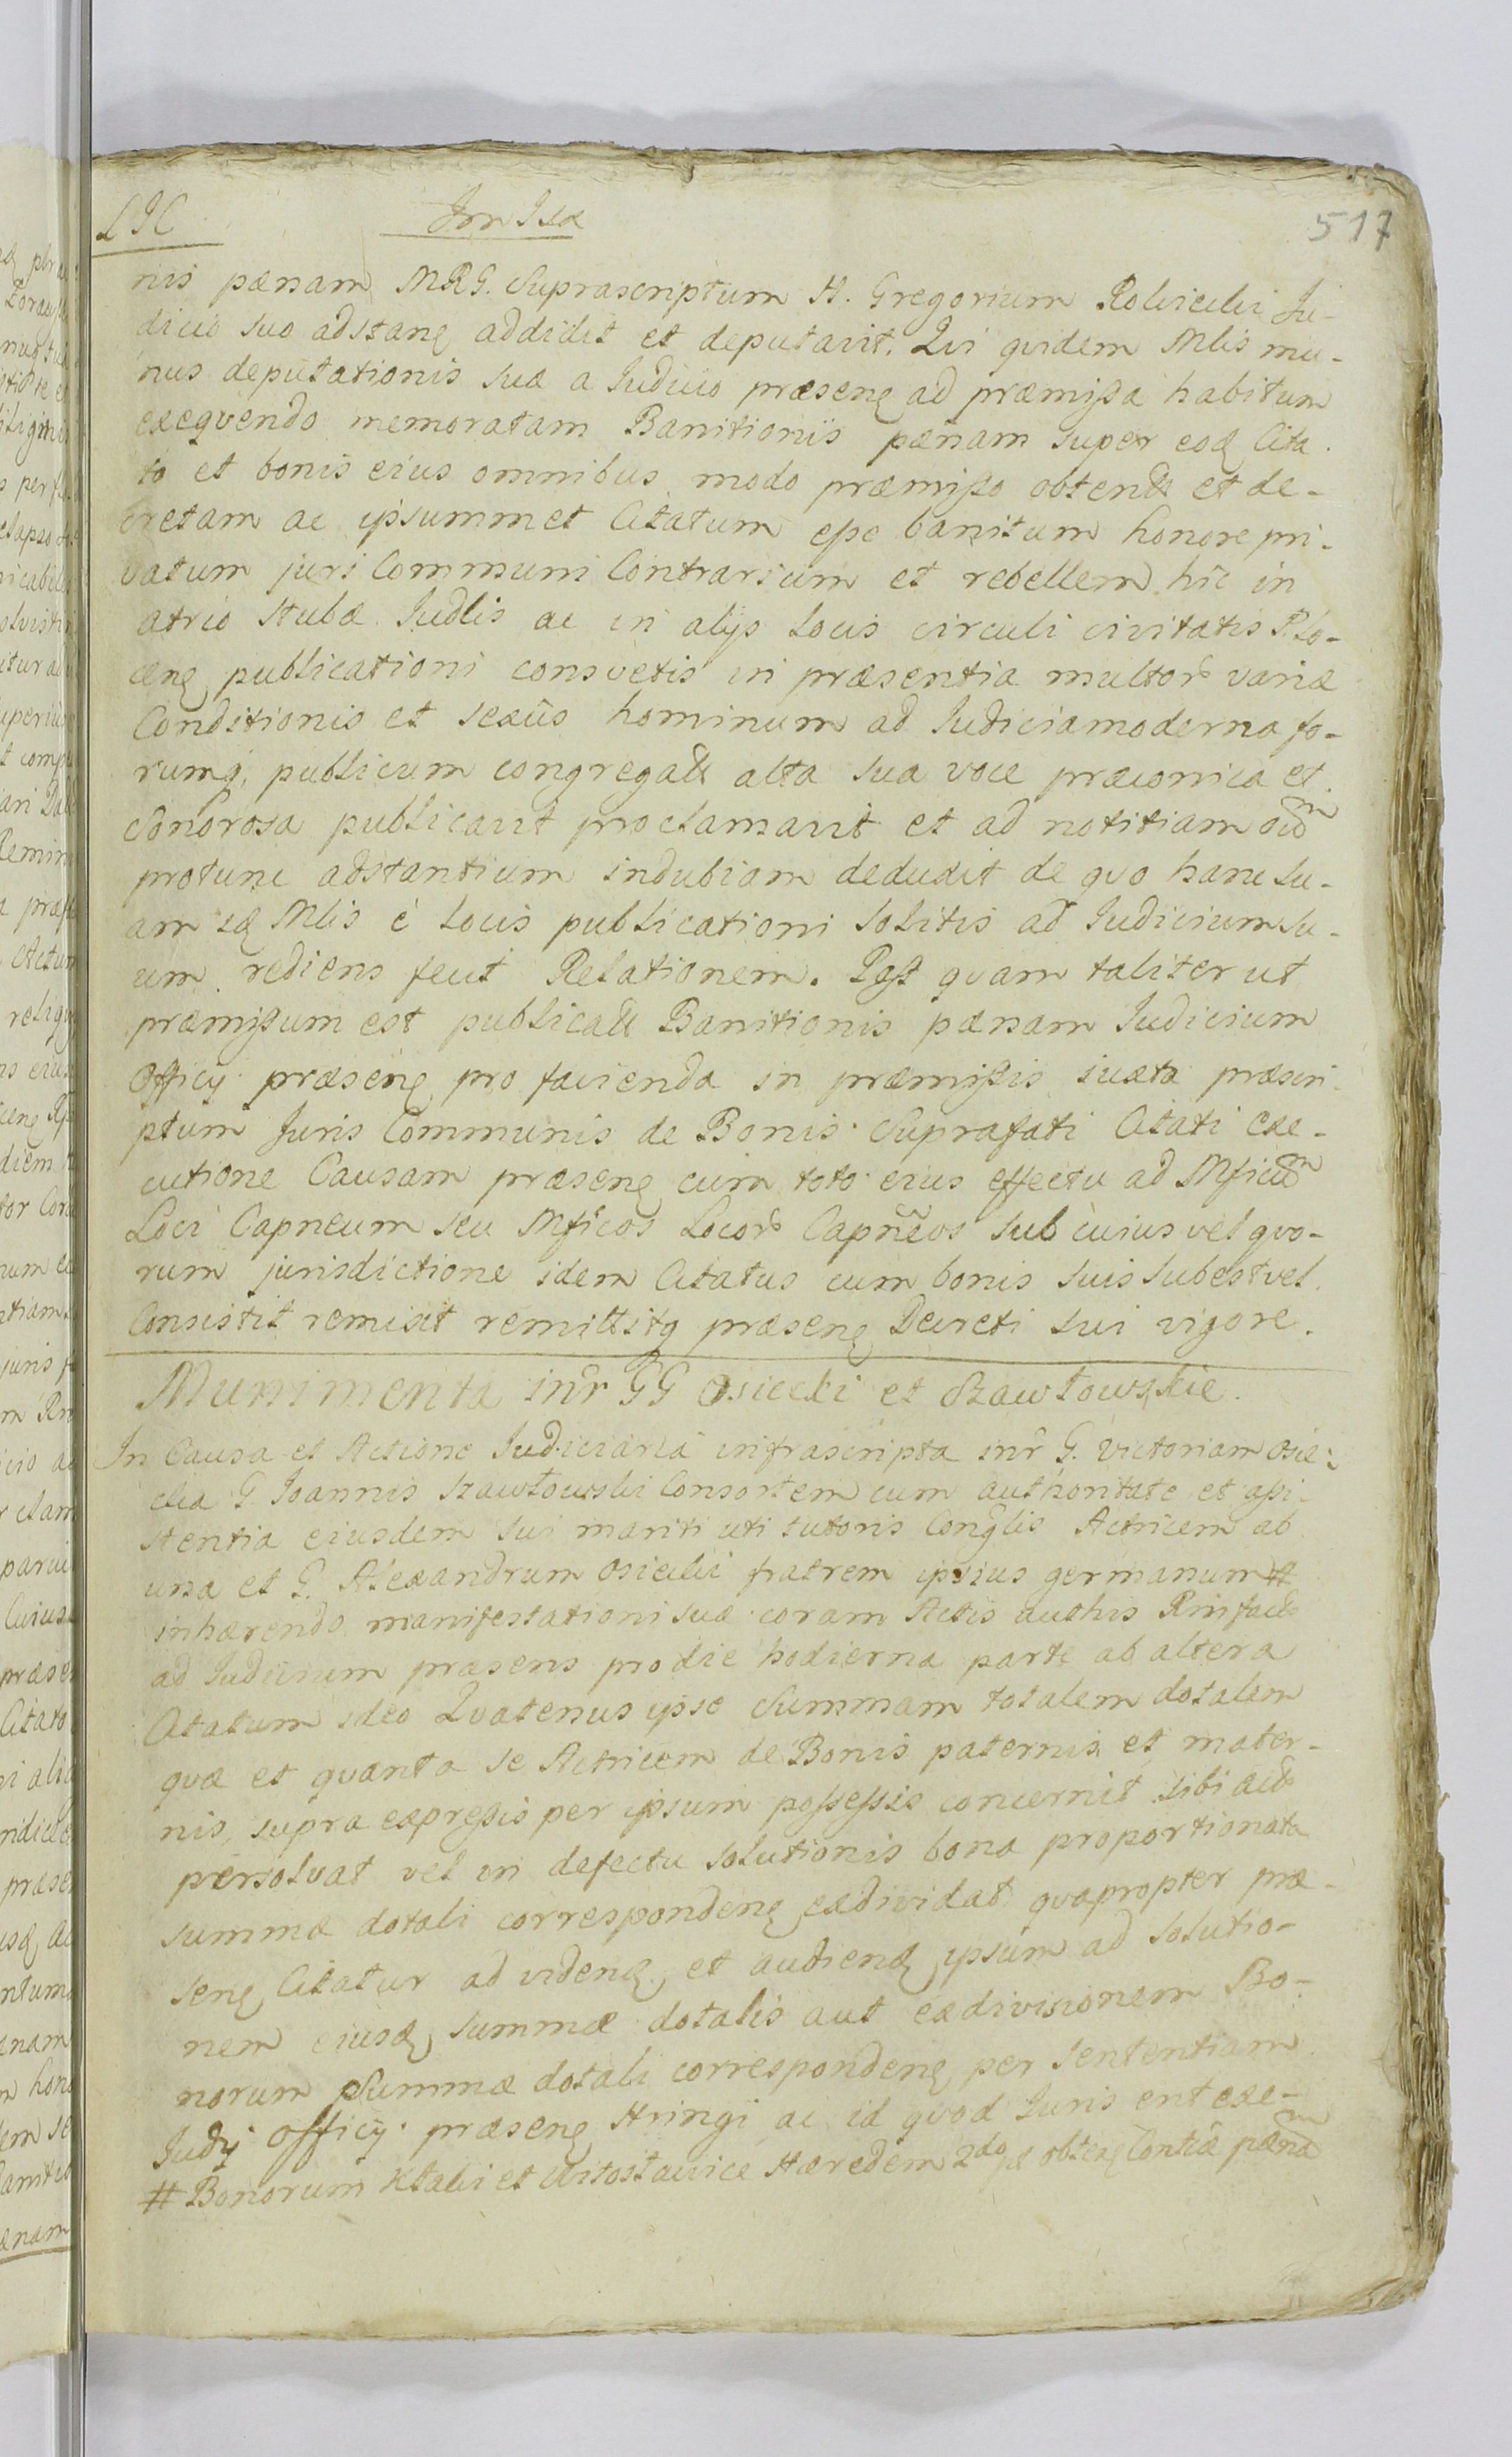 LIC
517
nis pænam MRG. Suprascriptum H. Gregorium Rolvicki Ju-
dicio suo adstang addidit et deputavit. Qvi qvidem Mlis mu-
nus deputationis suæ a Iudicio præseng ad præmißa habitum
exeqvendo memoratam Banitionis pænam super eoq Cita-
to et bonis eius omnibus modo præmißo obtentt et de-
cretam ac ipsummet Citatum eße banitum honore pri-
vatum juri Communi Contrarium et rebellem hic in
atrio Stubæ Iudlis ac in alijs Locis circuli civitatis Plo-
ceng publicationi consvetis in præsentia multor variæ
Conditionis et sexûs hominum ad Iudicia moderna fo-
rumq publicum congregatt alta sua voce præconica et
Sonorosa publicavit proclamavit et ad notitiam oium
protunc adstantium indubiam deduxit de qvo hanc Su-
am sq Mlis è Locis publicationi Solitis ad Iudicium su-
um rediens fecit Relationem. Post qvam taliter ut
præmißum est publicatt Banitionis pænam Iudicium
Officy præseng pro facienda in præmißis iuxta præscri-
ptum Juris Communis de Bonis Suprafati Citati exe-
cutione Causam præseng cum toto eius effectu ad Mficum
Loci Capneum seu Mficos Locor Capneos sub cuius vel qvo-
rum jurisdictione idem Citatus cum bonis suis Subest vel
Consistit remisit remittitq præseng Decreti sui vigore.
Munimenta inr GG Osiecki et Szawłowskie.
In Causa et Actione Iudiciaria infrascripta inr G. Victoriam Osie-
cka G. Joannis Szawłowski Consortem cum authoritate et aßi-
stentia eiusdem Sui mariti uti tutoris Conglis Actricem ab
una et G. Alexandrum Osiecki fratrem ipsius germanum #
inhærendo manifestationi suæ coram Actis authis
ad Iudicium præsens pro die hodierna parte ab altera
Citatum ideo Qvatenus ipse Summam totalem dotalem
qvæ et qvanta se Actricem de Bonis paternis et mater-
nis, supra expreßis per ipsum possessis concernit sibi
persolvat vel in defectu solutionis bona proportionata
summæ dotali correspondeng exdividat qvapropter præ-
seng Citatur ad videng et audieng ipsum ad Solutio-
nem eiusq summæ dotalis aut exdivisionem Bo-
norum Summæ dotali correspondeng per Sententiam
Iudy Officy præseng Stringi ac id qvod Iuris erit exe-
# Bonorum et Hæredem 2do